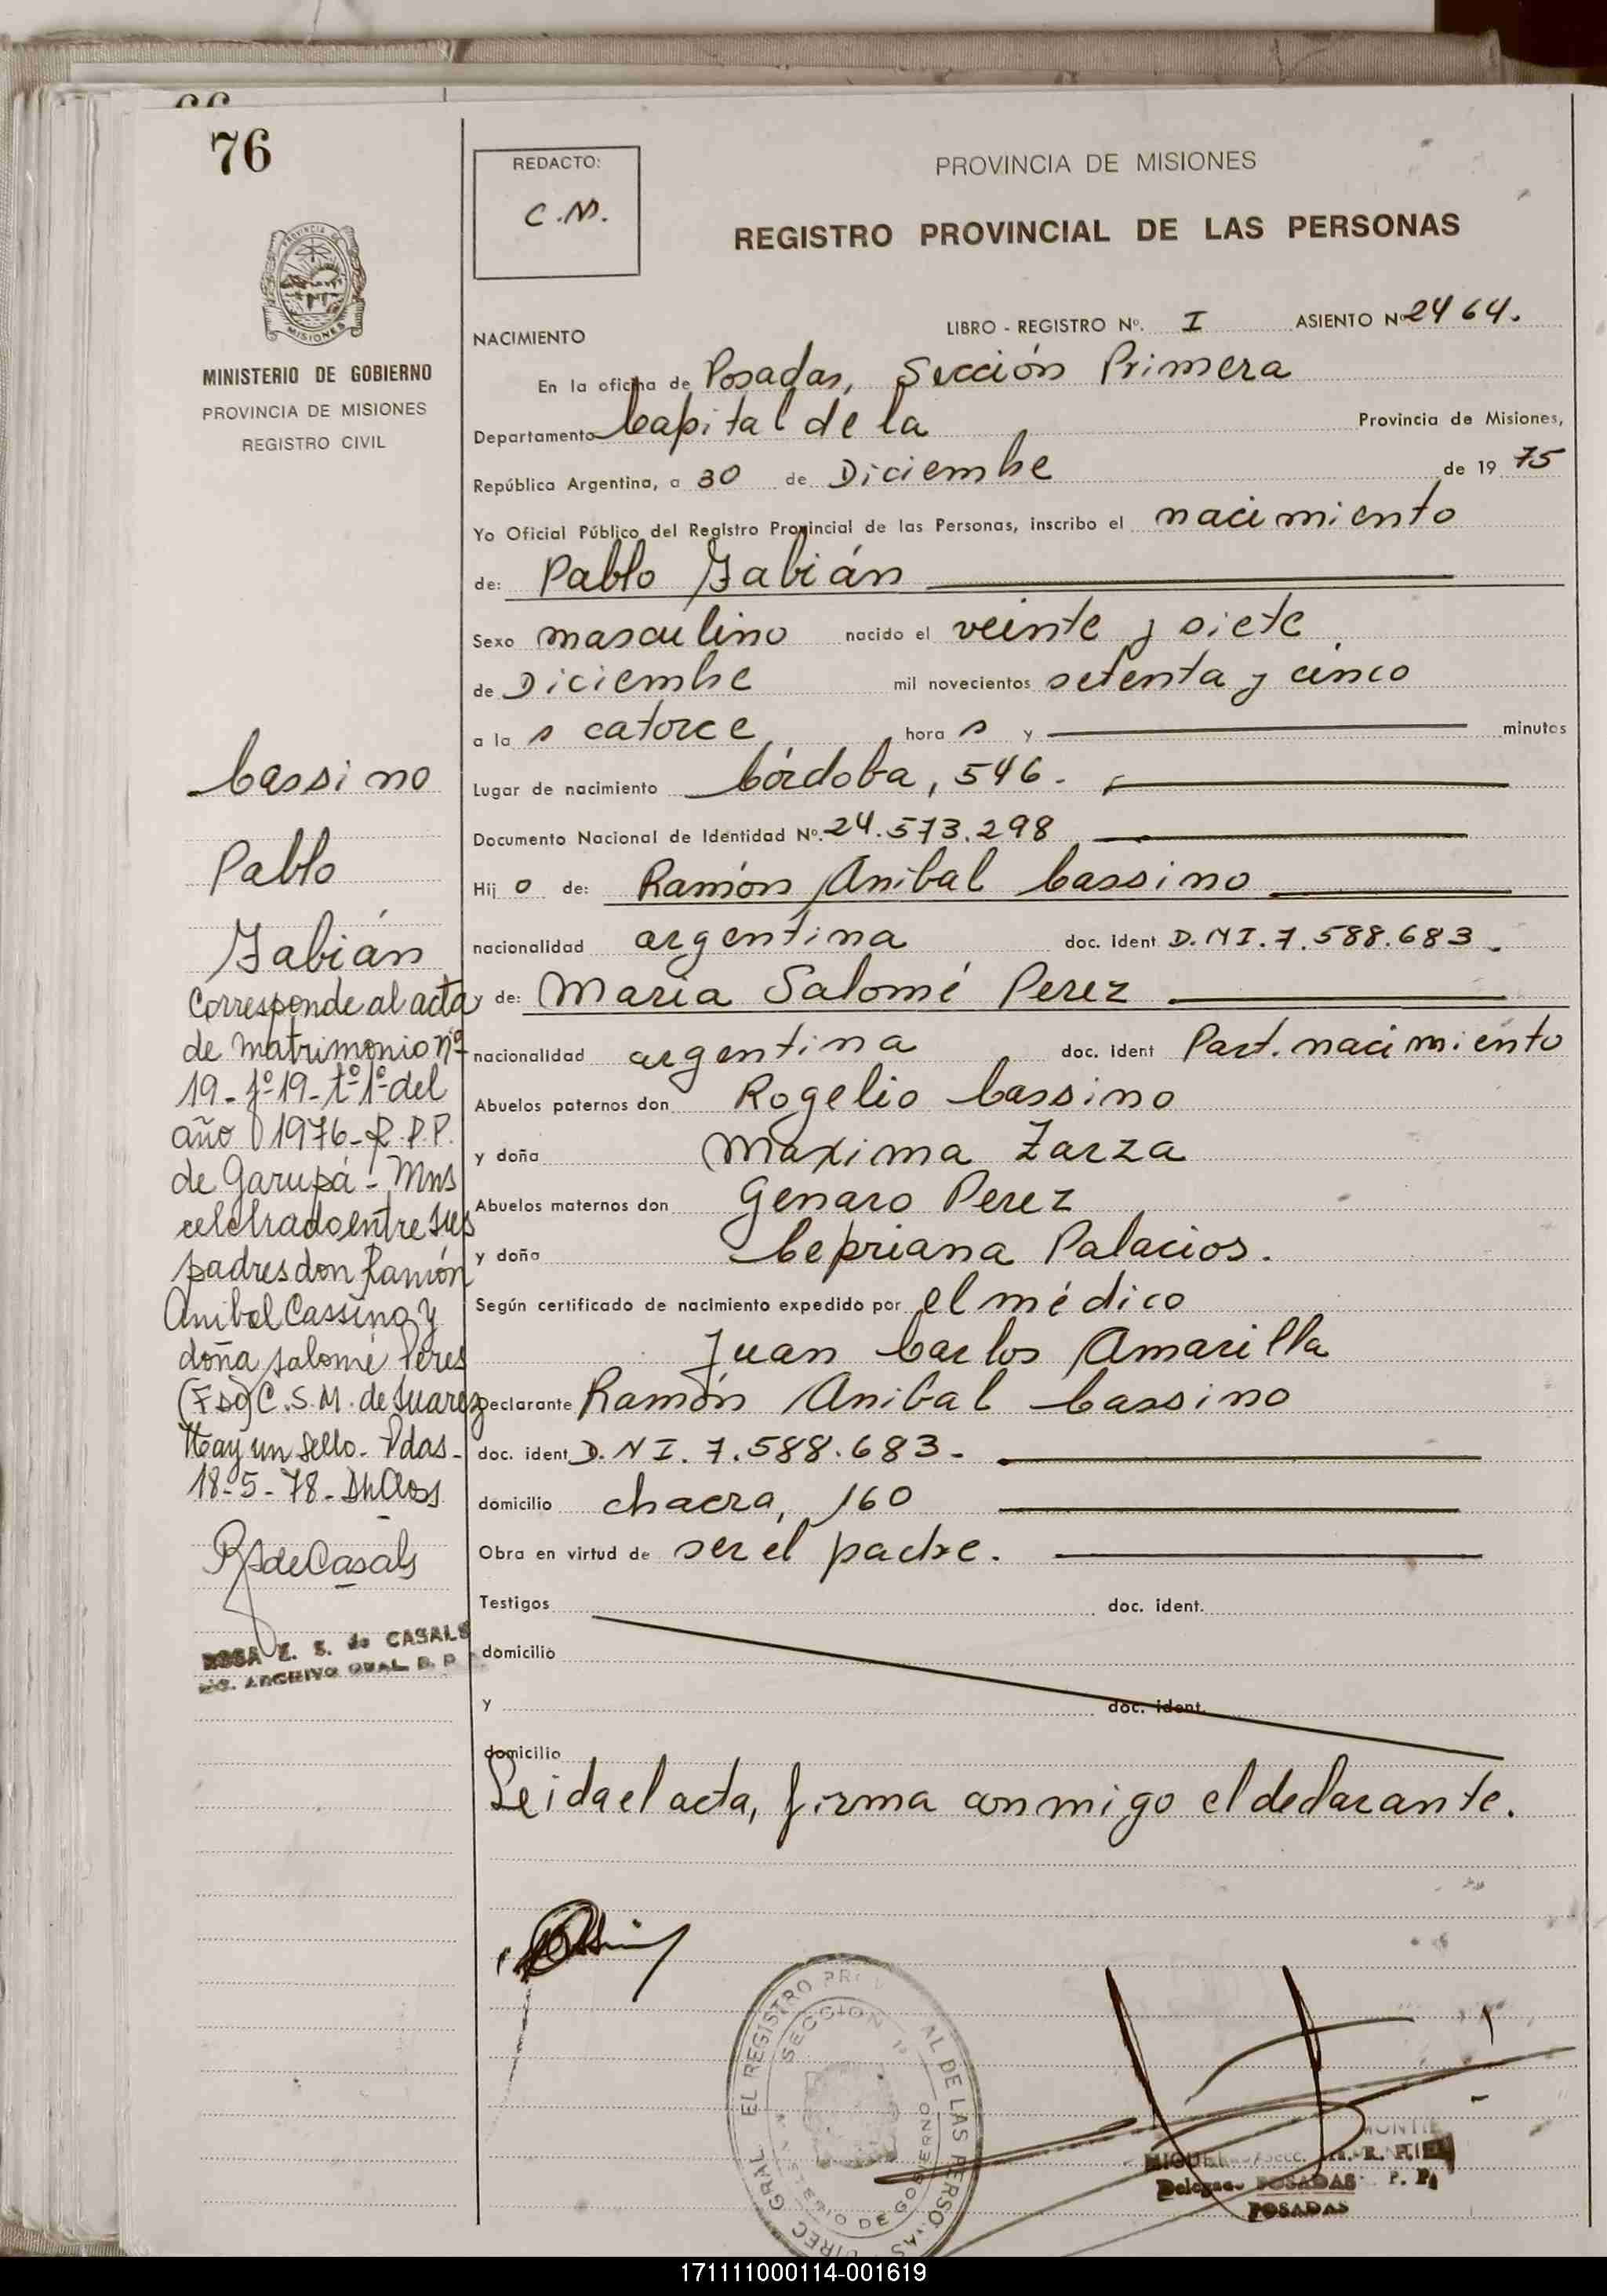 76
REDACTO:
C.M.
PROVINCIA DE MISIONES
REGISTRO PROVINCIAL DE LAS PERSONAS
MISIONES
MINISTERIO DE GOBIERNO
PROVINCIA DE MISIONES
REGISTRO CIVIL
NACIMIENTO
LIBRO - REGISTRO Nº. I ASIENTO Nº 2464.
En la oficina de Posadas, Sección Primera
Departamento Capital de la Provincia de Misiones,
República Argentina, a 30 de Diciembre de 19 75
Yo Oficial Público del Registro Provincial de las Personas, inscribo el nacimiento
de: Pablo Fabián
Sexo masculino nacido el veinte y siete
de Diciembre mil novecientos setenta y cinco
a la s catorce hora s y minutos
Lugar de nacimiento Córdoba, 546.
Documento Nacional de Identidad Nº. 24.573.298
Hij o de: Ramón Anibal Cassino
nacionalidad argentina doc. ident D.N I. 7.588.683.
y de: Maria Salomé Perez
nacionalidad argentina doc. ident Part. nacimiento
Abuelos paternos don Rogelio Cassino
y doña Maxima Zarza
Abuelos maternos don Genaro Perez
y doña Cepriana Palacios.
Según certificado de nacimiento expedido por el médico
Juan Carlos Amarilla
Declarante Ramón Anibal Cassino
doc. ident D. N I. 7.588.683.
domicilio chacra, 160
Obra en virtud de ser el padre.
Testigos doc. ident.
domicilio
y doc. ident.
domicilio
Leida el acta, firma conmigo el declarante.
Cassino
Pablo
Fabián
Corresponde al acta
de matrimonio nº
19 - fº 19 - tº 1º del
año 1976 - R.P.P.
de Garupá - Mns
celebrado entre sus
padres don Ramón
Anibal Cassino y
doña Salomé Peres
(Fdo) C.S.M. de Suarez
Hay un sello - Pdas -
18-5-78 -
RS de Casals
ROSA E. S. de CASALS
ARCHIVO GRAL. R. P.
DIREC GRAL EL REGISTRO PROV AL DE LAS PERSONAS
SECCION 1ª
MINISTERIO DE GOBIERNO
MIGUEL
POSADAS
POSADAS
171111000114-001619